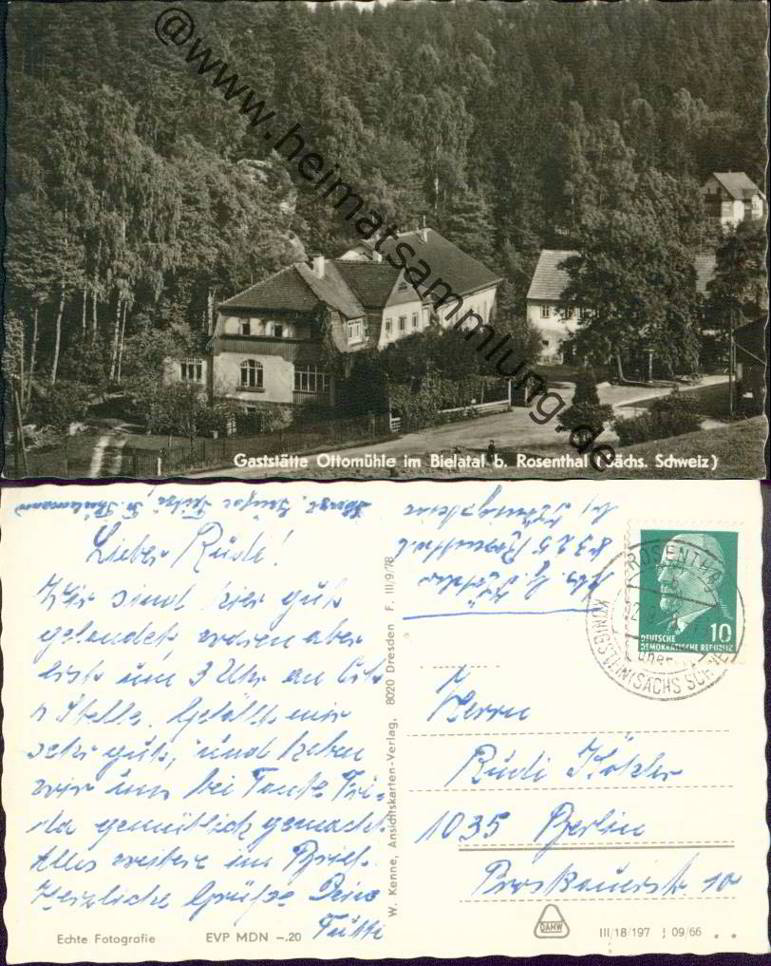 @www.heimatsammlung.de
Gaststätte Ottomühle im Bielatal b. Rosenthal (Sächs. Schweiz)
Lieber Rudi!
Wir sind hier gut
gelandet, waren aber
erst um 3 Uhr an
Stelle. Gefällt mir
sehr gut, und haben
wir uns bei Tante Fri-
da gemütlich gemacht.
Alles weitere im Brief.
Herzliche Grüße Deine
Echte Fotografie
EVP MDN –.20
W. Kenne, Ansichtskarten-Verlag, 8020 Dresden F. III/9/78
8325 Rosenthal
ROSENTHAL
KÖNIGSTEIN (SÄCHS SCHW
DEUTSCHE
DEMOKRATISCHE REPUBLIK
10
Herrn
Rudi Köhler
1035 Berlin
Proskauerstr 10
DAMW
III/18/197 09/66